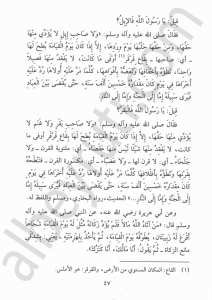 قيلَ: يا رَسُولَ اللَّهِ فَالإِبِلُ؟
فقال صلى الله عليه وآله وسلم: «ولا صاحِبُ إبلٍ لا يُؤَدِّي مِنْها
حَقَّها، وَمِنْ حَقِّها حَلْبُها يَوْمَ وِرْدِها، إلاّ إذا كَانَ يَوْمُ القِيَامَةِ بُطِحَ لَها
واحِداً، تَطَؤُهُ بأخْفَافِها وَتَعَضُّهُ بِأَفْواهِها، كُلَّما مَرَّ عَلَيْهِ أُولاها رُدَّ عَلَيْهِ
أُخْراها في يَوْمٍ كانَ مِقْدارُهُ خَمْسِينَ أَلْفَ سَنَةٍ، حَتَّى يُقْضَى بَيْنَ العِبادِ
فَيَرَى سَبِيلَهُ إمَّا إِلَى الْجَنَّةِ وَإمَّا إِلى النَّارِ.
قيلَ: يا رَسُولَ اللَّهِ فَالْبَقَرُ؟
فقال صلى الله عليه وآله وسلم: «ولا صاحِبُ بَقَرٍ ولا غَنَمٍ لا
يُؤَدِّي مِنْها حَقَّها، إلاّ إذا كانَ يَوْمُ القِيَامَةِ بُطِحَ لَها بِقَاعٍ قَرْقَرٍ أوفر ما
كانت، لا يَفْقِدُ مِنْها شَيْئاً لَيْسَ فيها عَقْصَاءُ - أي: ملتوية القرن - ولا
جَلْحاءُ - أي: لا قرن لها - ولا عَضْباءُ - أي: مكسورة القرن - فَتَنْطَحُهُ
بِقُرُونِها وَتَطَؤُهُ بِأَظْلافِها كُلَّما مَرَّ عَلَيْهِ أُولاها رُدَّ عَلَيْهِ أُخْراها في يَوْمٍ
كانَ مِقْدارُهُ خَمْسِينَ أَلْفَ سَنَةٍ حَتَّى يُقْضَى بَيْنَ العِبادِ فَيَرَى سَبِيلَهُ إمَّا
إلى الْجَنَّةِ وَإمَّا إلى النَّارِ...» الحديث، رواه البخاري، ومسلم واللفظ له.
وعن أبي هريرة رضي الله عنه، عن النبي صلى الله عليه وآله
وسلم قال: «مَنْ آتاهُ اللَّهُ مالاً فَلَمْ يُؤَدِّ زَكاتَهُ مُثِّلَ لَهُ يَوْمَ القِيَامَةِ شُجاعاً
أَقْرَعَ لَهُ زَبِيبَتانِ، يُطَوَّقُهُ يَوْمَ القِيَامَةِ، ثُمَّ يَأْخُذُ بِلِهْزِمَتَيْهِ - يعني: بشدقي
مانع الزكاة - ثُمَّ يَقُولُ: أَنا مالُكَ، أَنا كَنْزُكَ».
(١) القاع: المكان المستوي من الأرض، والقرقر: هو الأملس.
٤٧